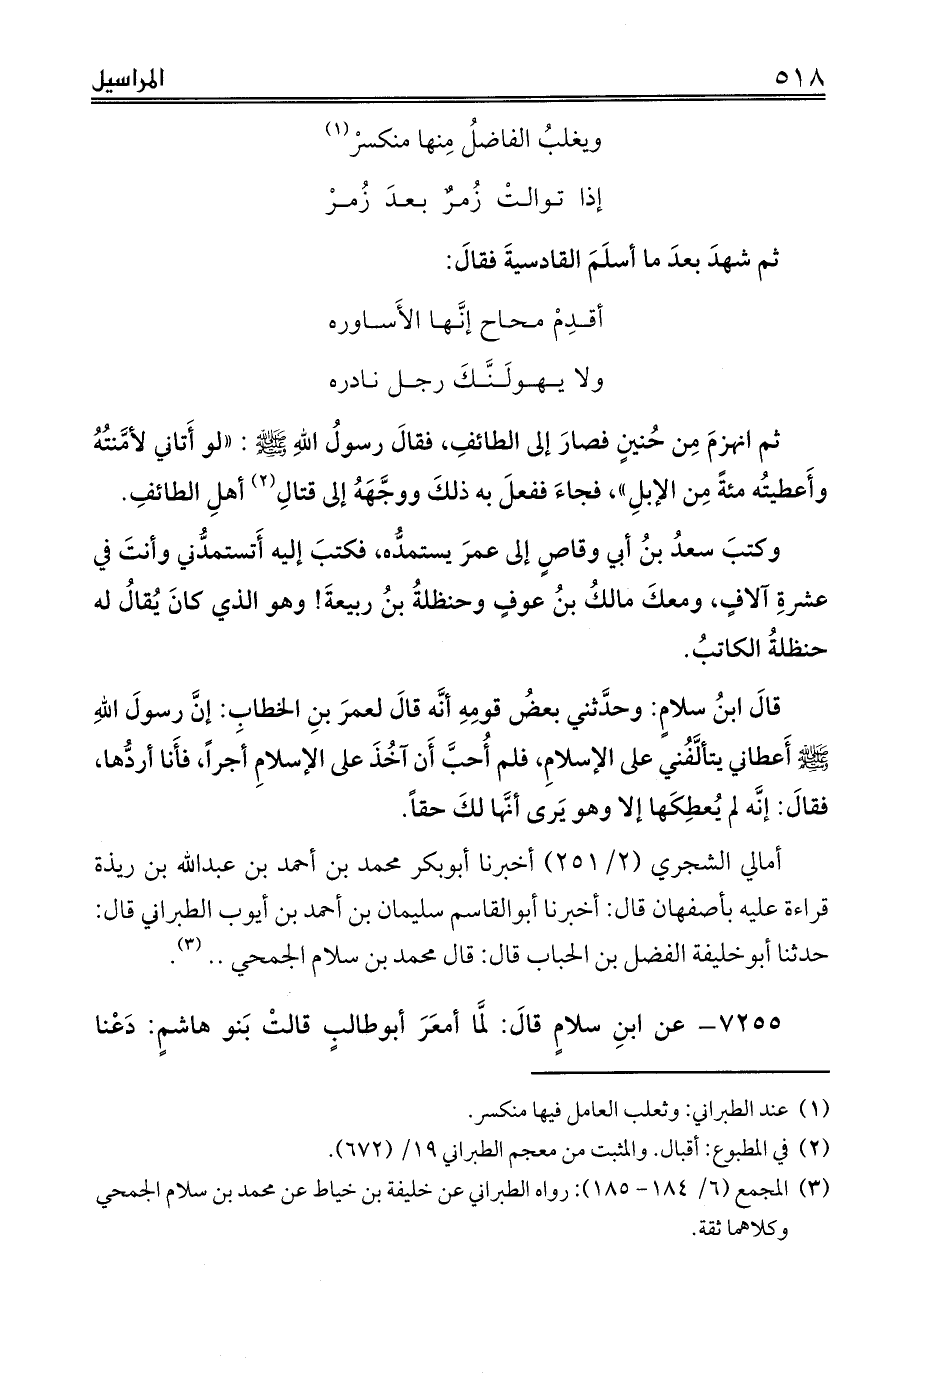 ٥١٨ المراسيل
ويغلبُ الفاضلُ مِنها منكسرْ(١)
إذا توالتْ زُمرٌ بعدَ زُمرْ
ثم شهدَ بعدَ ما أسلَمَ القادسيةَ فقالَ:
أقدِمْ محاج إنَّها الأَساوره
ولا يهولَنَّكَ رجل نادره
ثم انهزمَ مِن حُنينٍ فصارَ إلى الطائفِ، فقالَ رسولُ اللهِ ﷺ : «لو أَتاني لأمَّنتُهُ
وأَعطيتُه مئةً مِن الإبلِ»، فجاءَ ففعلَ به ذلكَ ووجَّهَهُ إلى قتالِ(٢) أهلِ الطائفِ.
وكتبَ سعدُ بنُ أبي وقاصٍ إلى عمرَ يستمدُّه، فكتبَ إليه أَتستمدُّني وأنتَ في
عشرةِ آلافٍ، ومعكَ مالكُ بنُ عوفٍ وحنظلةُ بنُ ربيعةَ! وهو الذي كانَ يُقالُ له
حنظلةُ الكاتبُ.
قالَ ابنُ سلامٍ: وحدَّثني بعضُ قومِهِ أنَّه قالَ لعمرَ بنِ الخطابِ: إنَّ رسولَ اللهِ
ﷺ أَعطاني يتألَّفُني على الإسلامِ، فلم أُحبَّ أَن آخُذَ على الإسلامِ أجراً، فأَنا أردُّها،
فقالَ: إنَّه لم يُعطِكَها إلا وهو يَرى أنَّها لكَ حقاً.
أمالي الشجري (٢/ ٢٥١) أخبرنا أبوبكر محمد بن أحمد بن عبدالله بن ريذة
قراءة عليه بأصفهان قال: أخبرنا أبوالقاسم سليمان بن أحمد بن أيوب الطبراني قال:
حدثنا أبوخليفة الفضل بن الحباب قال: قال محمد بن سلام الجمحي .. (٣).
٧٢٥٥- عن ابنِ سلامٍ قالَ: لمَّا أمعَرَ أبوطالبٍ قالتْ بَنو هاشمٍ: دَعْنا
(١) عند الطبراني: وثعلب العامل فيها منكسر.
(٢) في المطبوع: أقبال. والمثبت من معجم الطبراني ١٩/ (٦٧٢).
(٣) المجمع (٦/ ١٨٤ - ١٨٥): رواه الطبراني عن خليفة بن خياط عن محمد بن سلام الجمحي
وكلاهما ثقة.